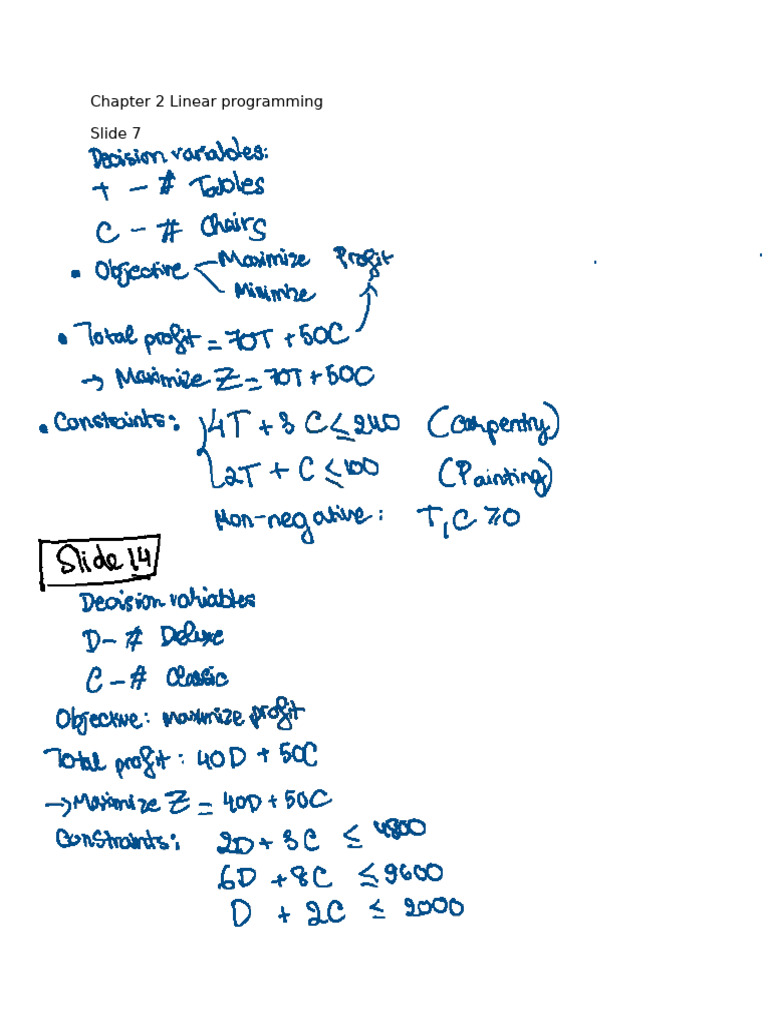 Chapter 2 Linear programming
Slide 7
Decision variables:
T - # Tables
C - # Chairs
• Objective Maximize Profit
Minimize
• Total profit = 70T + 50C
→ Maximize Z = 70T + 50C
• Constraints: 4T + 3C ≤ 240 (Carpentry)
2T + C ≤ 100 (Painting)
Non-negative: T, C ≥ 0
Slide 14
Decision variables
D - # Deluxe
C - # Classic
Objective: maximize profit
Total profit: 40D + 50C
→ Maximize Z = 40D + 50C
Constraints: 2D + 3C ≤ 4800
6D + 8C ≤ 9600
D + 2C ≤ 2000